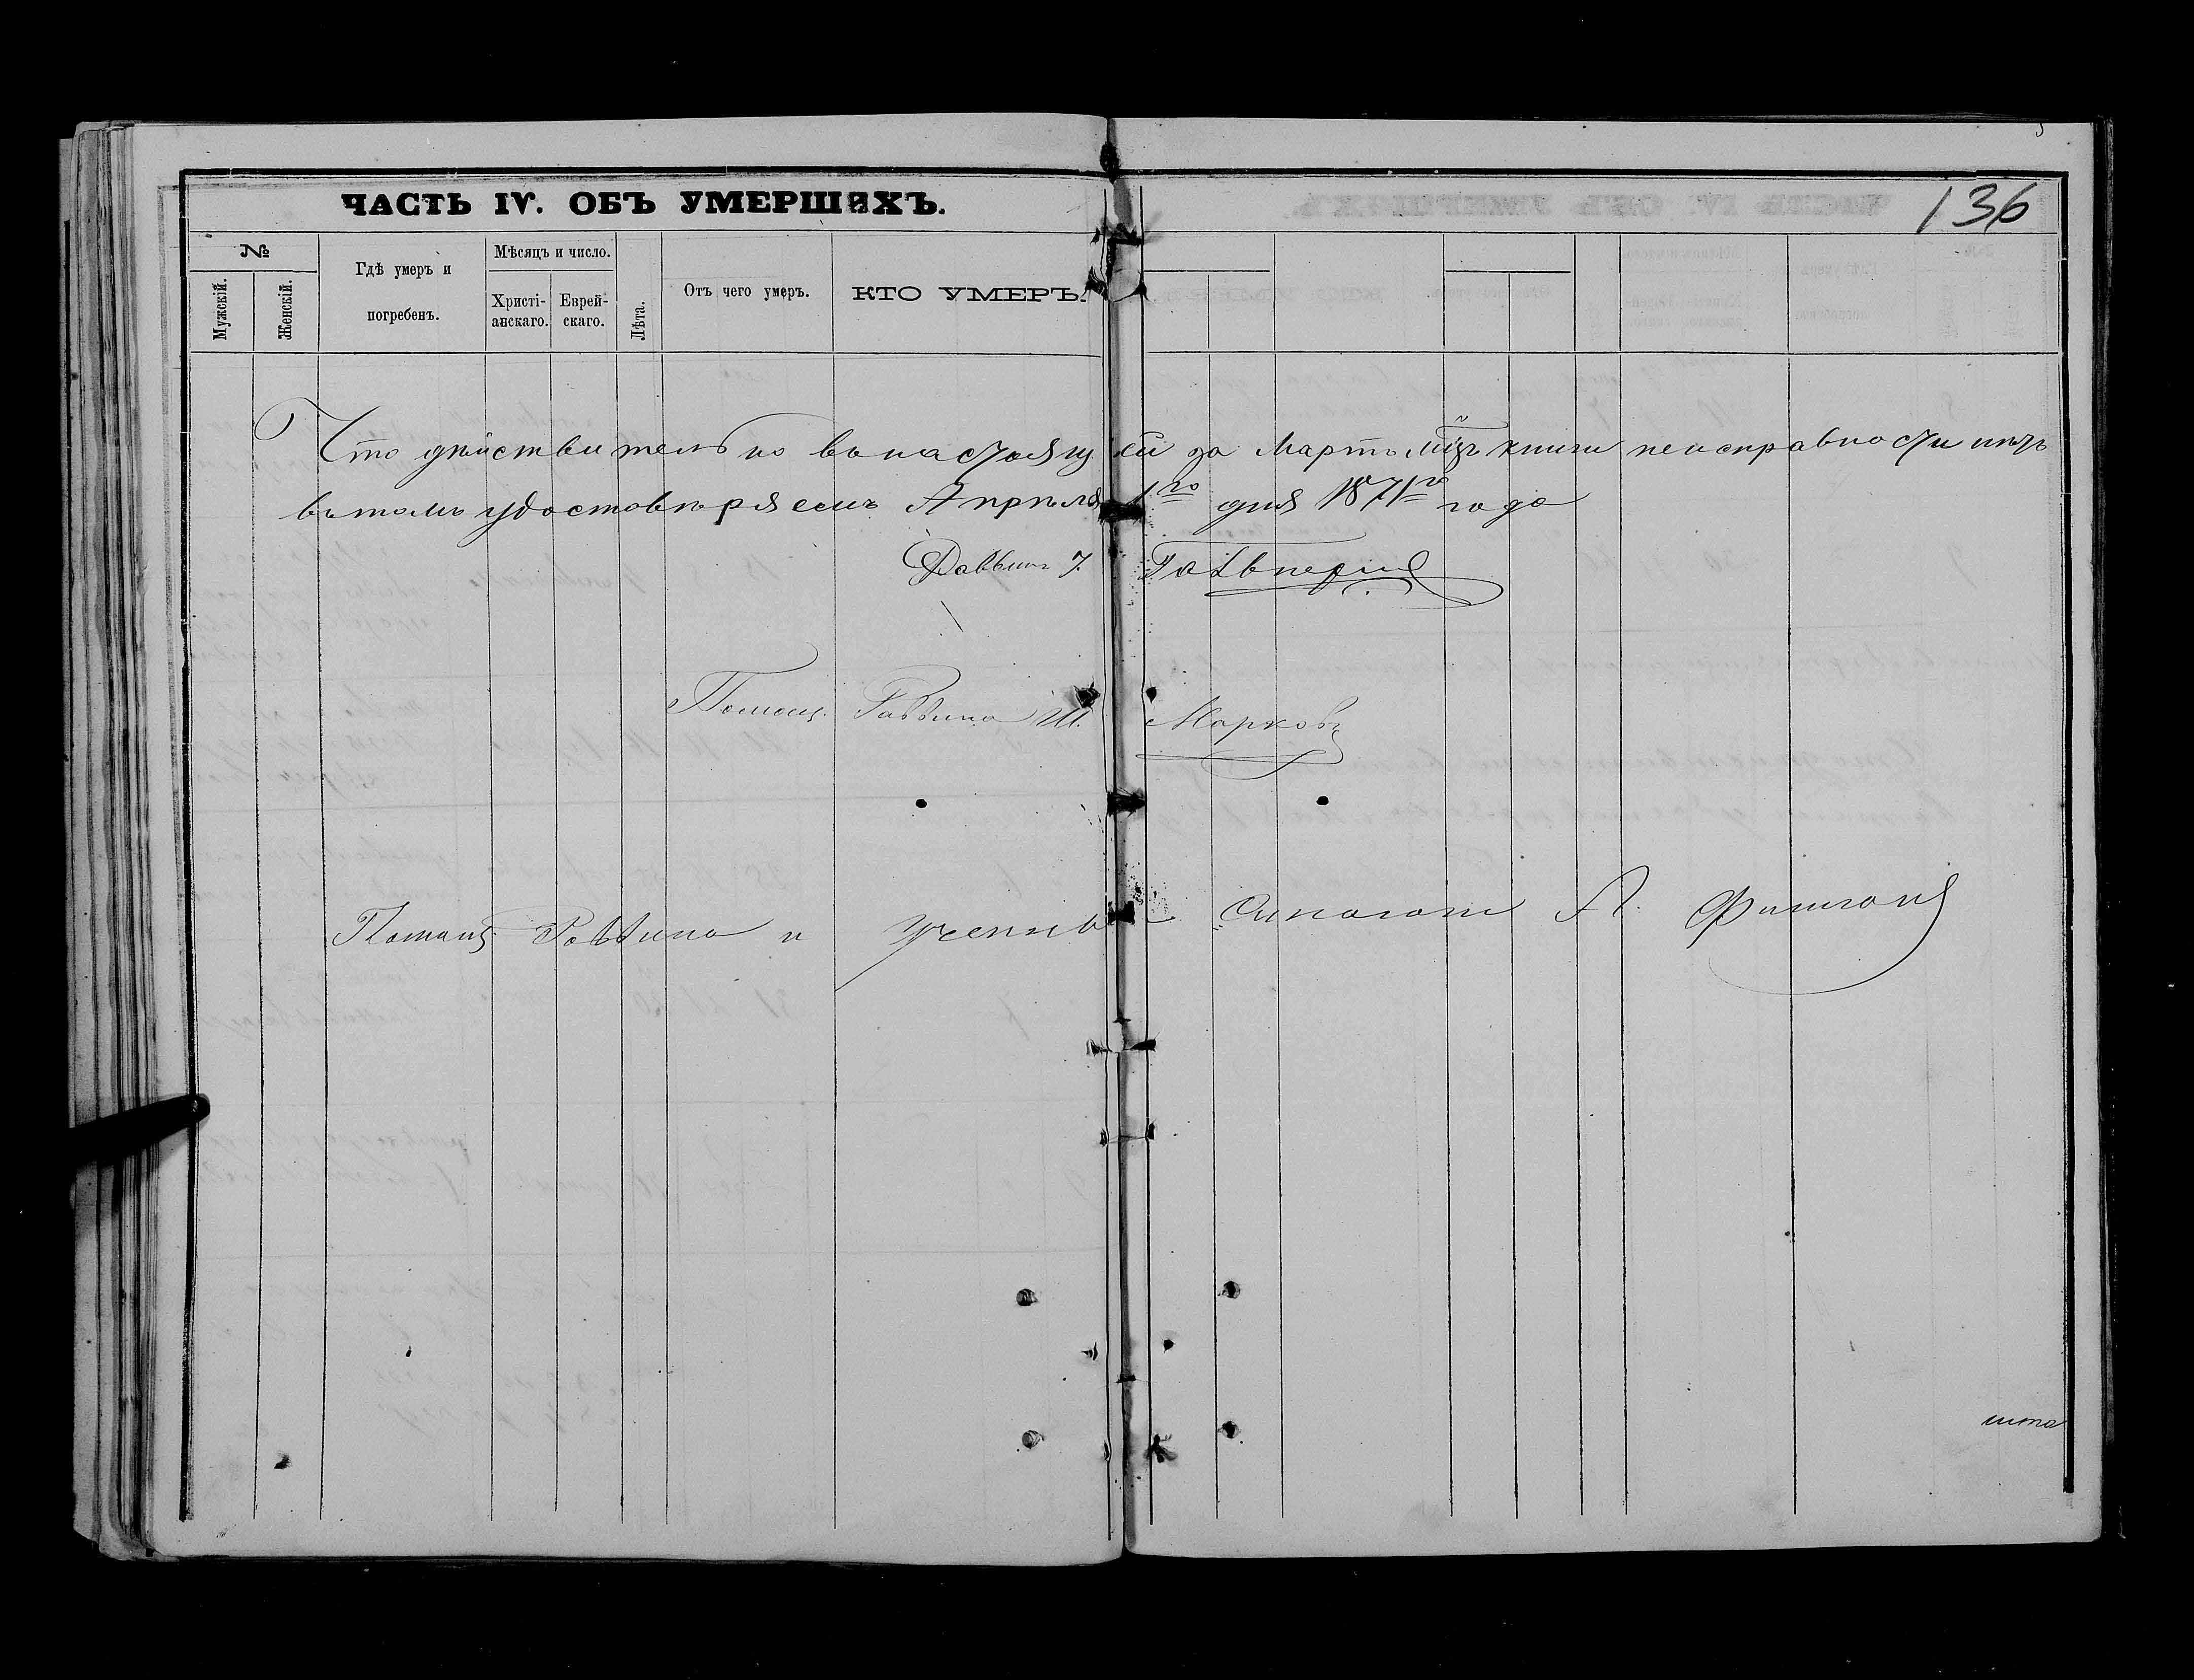 ЧАСТЬ IV. ОБЪ УМЕРШИХЪ.
136
№
Мужскій.
Женскій.
Гдѣ умеръ и погребенъ.
Мѣсяцъ и число.
Христі-
анскаго.
Еврей-
скаго.
Лѣта.
Отъ чего умеръ.
КТО УМЕРЪ.
Что дѣйствительно въ настоящей за Мартъ мцъ книги неисправности нѣтъ
въ томъ удостовѣряемъ Апрѣля 1го дня 1871го года
Раввинъ
Помощ. Раввина Ш. Марковъ
Помощ. Раввина и Ученый Синагоги А.